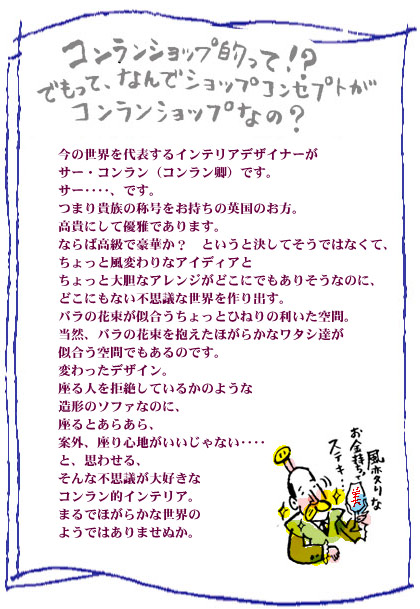 コンランショップ的って!?
でもって、なんでショップコンセプトが
コンランショップなの?
今の世界を代表するインテリアデザイナーが
サー・コンラン（コンラン卿）です。
サー‥‥、です。
つまり貴族の称号をお持ちの英国のお方。
高貴にして優雅であります。
ならば高級で豪華か？　というと決してそうではなくて、
ちょっと風変わりなアイディアと
ちょっと大胆なアレンジがどこにでもありそうなのに、
どこにもない不思議な世界を作り出す。
バラの花束が似合うちょっとひねりの利いた空間。
当然、バラの花束を抱えたほがらかなワタシ達が
似合う空間でもあるのです。
変わったデザイン。
座る人を拒絶しているかのような
造形のソファなのに、
座るとあらあら、
案外、座り心地がいいじゃない‥‥
と、思わせる、
そんな不思議が大好きな
コンラン的インテリア。
まるでほがらかな世界の
ようではありませぬか。
風変りな
お金持ち!
ステキ…